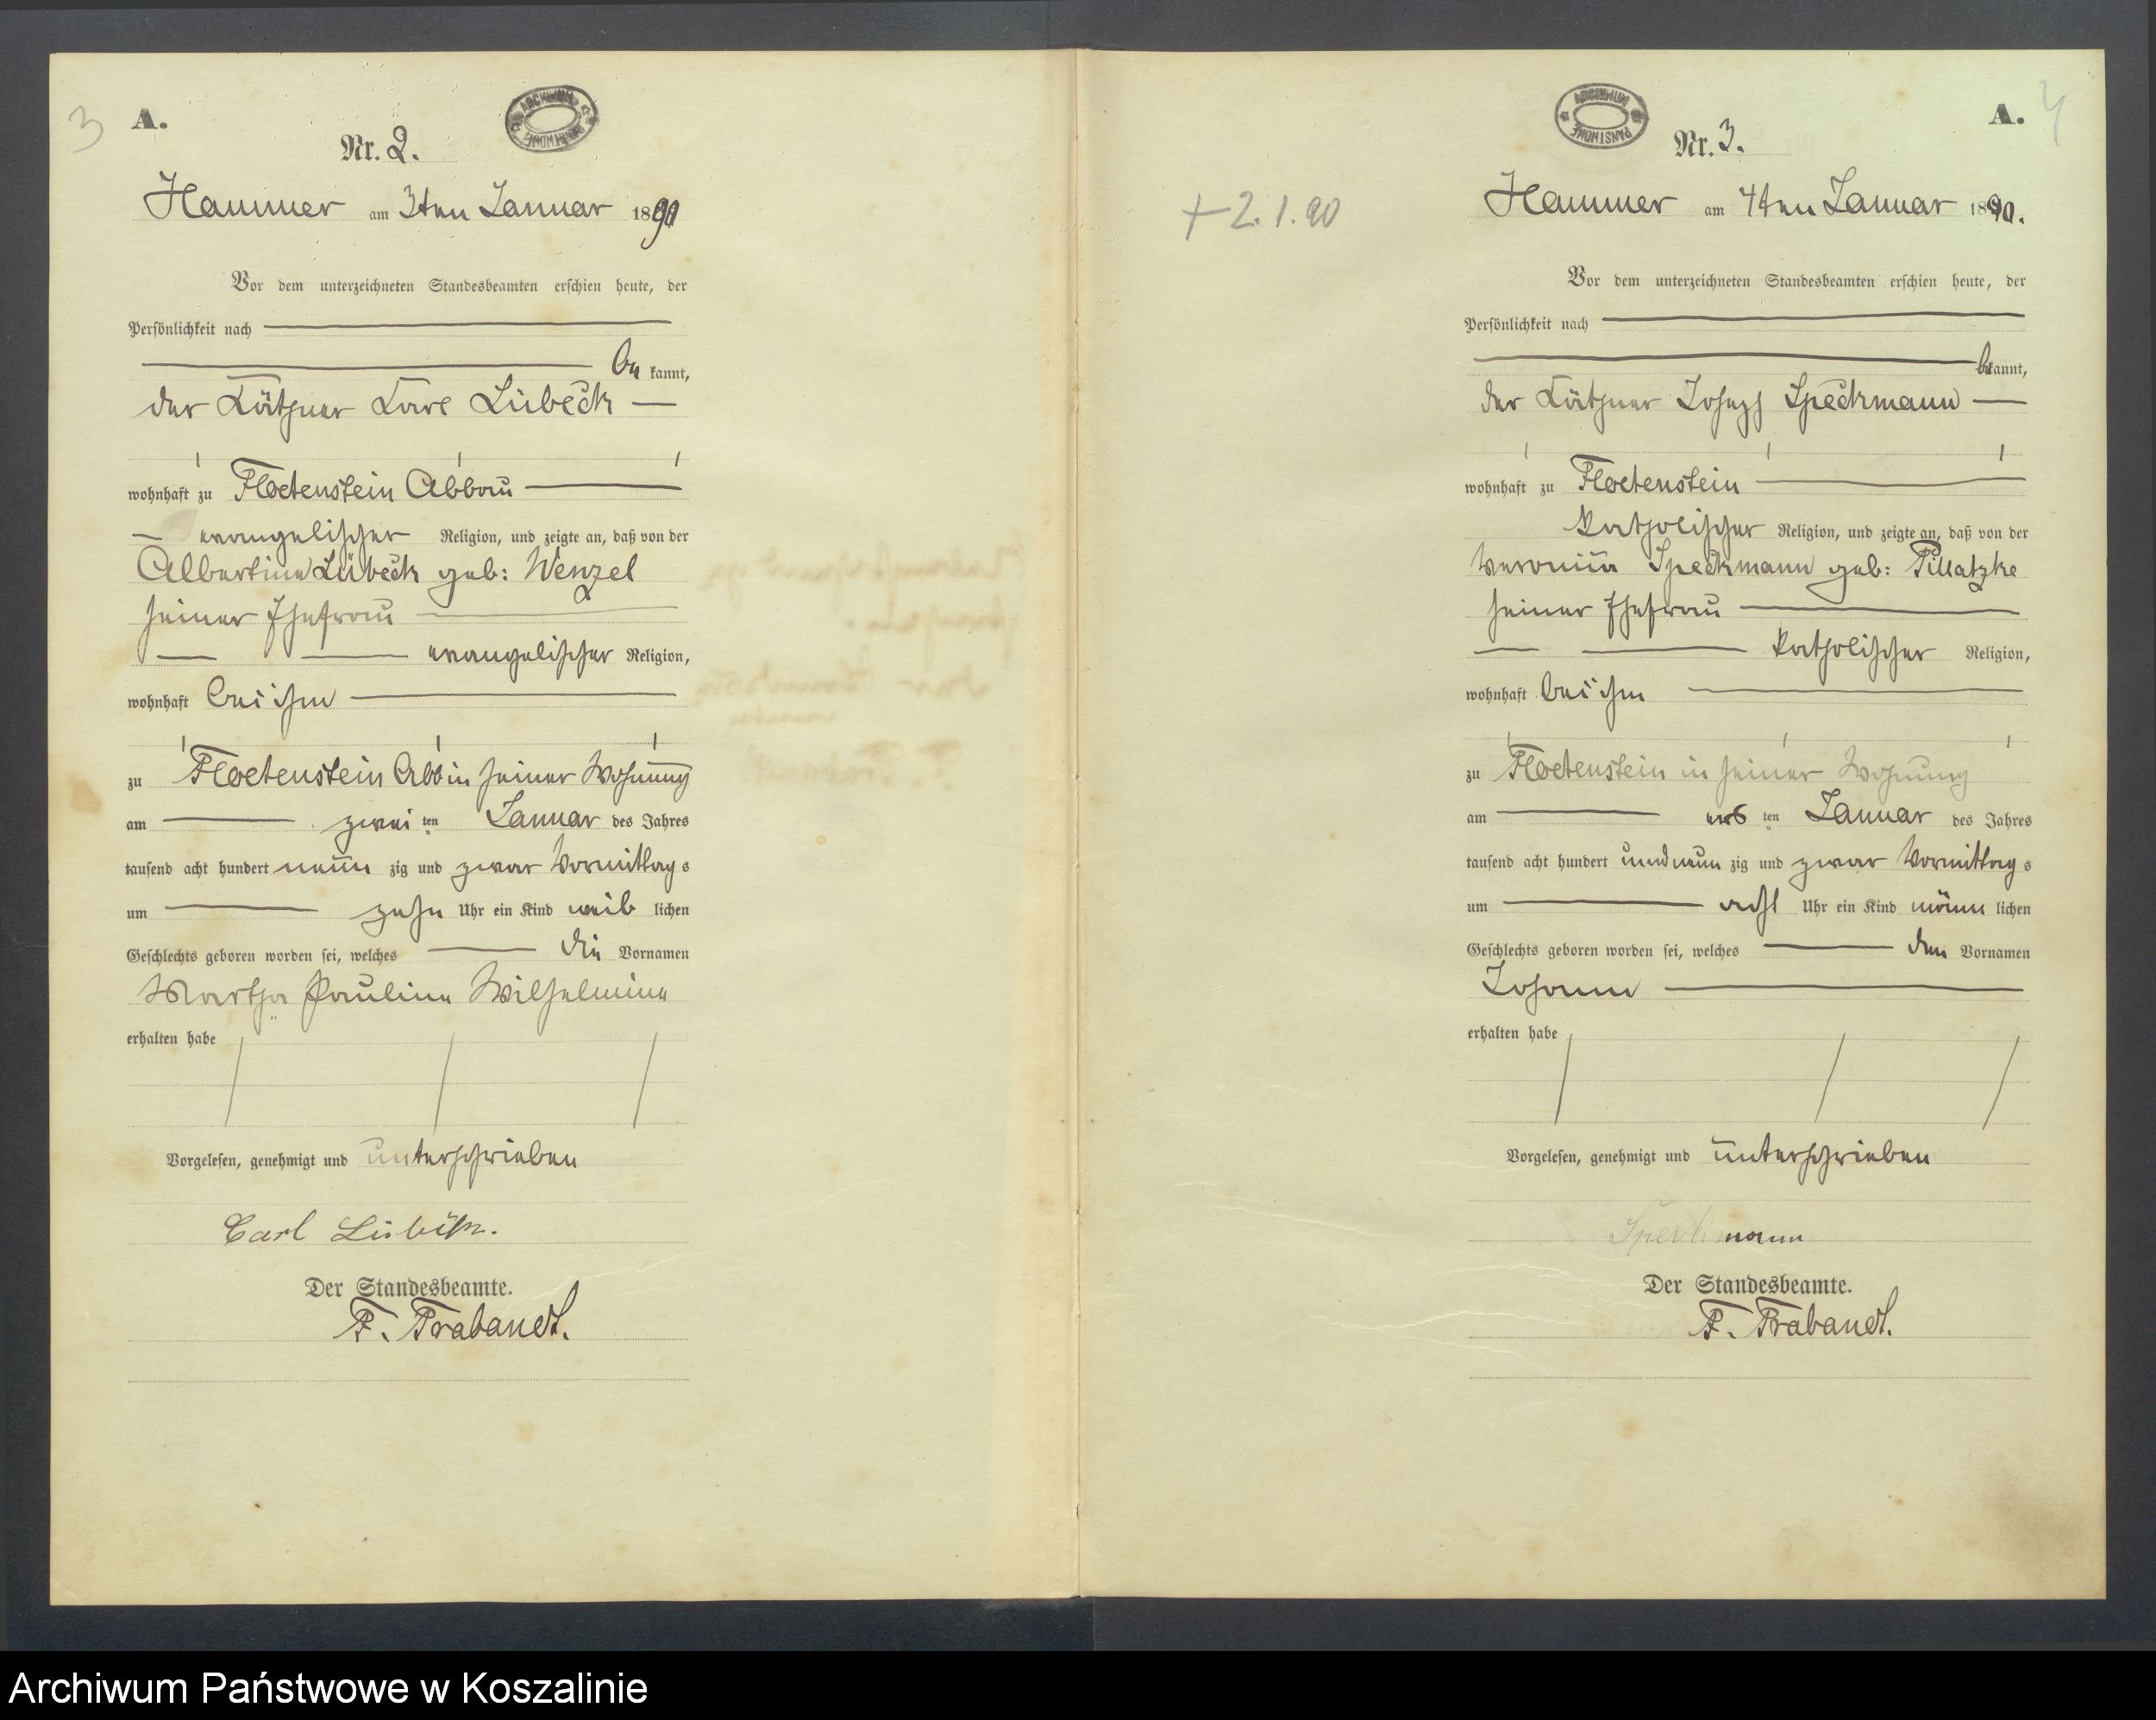 3
A.
ARCHIWUM PAŃSTWOWE
Nr. 2.
Hammer am 3ten Januar 1890
Vor dem unterzeichneten Standesbeamten erschien heute, der
Persönlichkeit nach
be kannt,
der Käthner Karl Lübeck
wohnhaft zu Floetenstein Abbau
evangelischer Religion, und zeigte an, daß von der
Albertine Lübeck geb: Wenzel
seiner Ehefrau
evangelischer Religion,
wohnhaft bei ihm
zu Floetenstein Abb in seiner Wohnung
am zwei ten Januar des Jahres
tausend acht hundert neun zig und zwar Vormittag s
um zehn Uhr ein Kind weib lichen
Geschlechts geboren worden sei, welches die Vornamen
Martha Pauline Wilhelmine
erhalten habe
Vorgelesen, genehmigt und unterschrieben
Carl Lübeck.
Der Standesbeamte.
F. Trabandt.
4
A.
ARCHIWUM PAŃSTWOWE
Nr. 3.
+ 2.1.90
Hammer am 4ten Januar 1890.
Vor dem unterzeichneten Standesbeamten erschien heute, der
Persönlichkeit nach
bekannt,
der Käthner Joseph Speckmann
wohnhaft zu Floetenstein
katholischer Religion, und zeigte an, daß von der
Speckmann geb: Pillatzke
seiner Ehefrau
katholischer Religion,
wohnhaft bei ihm
zu Floetenstein in seiner Wohnung
am ers ten Januar des Jahres
tausend acht hundert und neun zig und zwar Vormittag s
um acht Uhr ein Kind männ lichen
Geschlechts geboren worden sei, welches den Vornamen
Johann
erhalten habe
Vorgelesen, genehmigt und unterschrieben
Speckmann
Der Standesbeamte.
F. Trabandt.
Archiwum Państwowe w Koszalinie